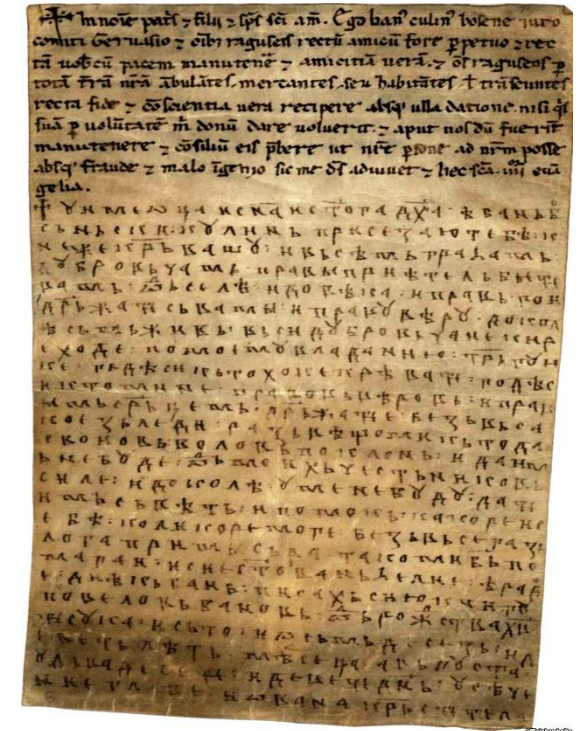 ☩ In noīe pat̄s ⁊ filii ⁊ sp̄s sc̄i am̄. Ego ban' culin' bosene iuro
comiti Geruasio ⁊ oīb; raguseis rectū amicū fore ꝑpetuo ⁊ rec
tā uob̄cū pacem manutenē ⁊ amicitiā uerā. ⁊ oēs raguseos ꝑ
totā t̄rā nr̄ā ābulātes. mercantes. seu habitātes. ł trāseuntes
recta fide ⁊ cōscientia uera recipere absq; ulla datione. nisi q's
suā ꝑ uolūtatē m̄ donū dare uoluerit. ⁊ aput nos dū fuerīt
manutenere ⁊ cōsiliū eis p̄bere ut nr̄e ꝑsone ad nr̄m posse
absq; fraude ⁊ malo īgenio sic me ds̄ adiuuet ⁊ hec sc̄a iiii euā
gelia.
☩ Ѹ имє ѡца и сна и стога дха · ѣ бань бо
сьньски кѹлинь присєзаю тєбѣ : к
нєжє крьвашѹ : и вьсѣмь грагамь :
дѹбровьчамь · правы приѣтєль быти
вамь · ѿсєлѣ · и довѣка · и правь гои
дрьжати сь вами · и правѹ вѣрѹ · докол
ѣ сьмь живь · вьси дѹбровьчанє кирє
ходє · по моємѹ владанию · трьгѹю
кє · гьдѣ си кьто хокє крєвати · годѣ
си кто минє · правовь вѣровь · и прав
имь срьцємь · дрьжати є · бєзь вьса
коє зьлєди · развѣ що ми кьто да
своиовь воловь поклонь · и да им
ь нє бѹдє · ѿ моихь чєстьниковь
силє · и доколѣ ѹ мєнє бѹдѹ · дати
имь сьвѣть · и помокь · какорє и с
єбѣ · коликорє могє · бєзь вьсєга зь
лога примысьла · тако ми бь по
магаи · и сиє сто єваньєлиє · ѣ радо
є · диѣкь бань · писахь сию книгѹ
повєловь бановь · ѿ рожства хва
тисѹка и сьто · и ѡсьмьдєсєть · и
дєвєть лѣть · мѣсєца авьгѹста ·
ѹ дьвадєсєти · и дєвєти днь · ѹсѣчє
ниє главє · иѡвана крьститєла